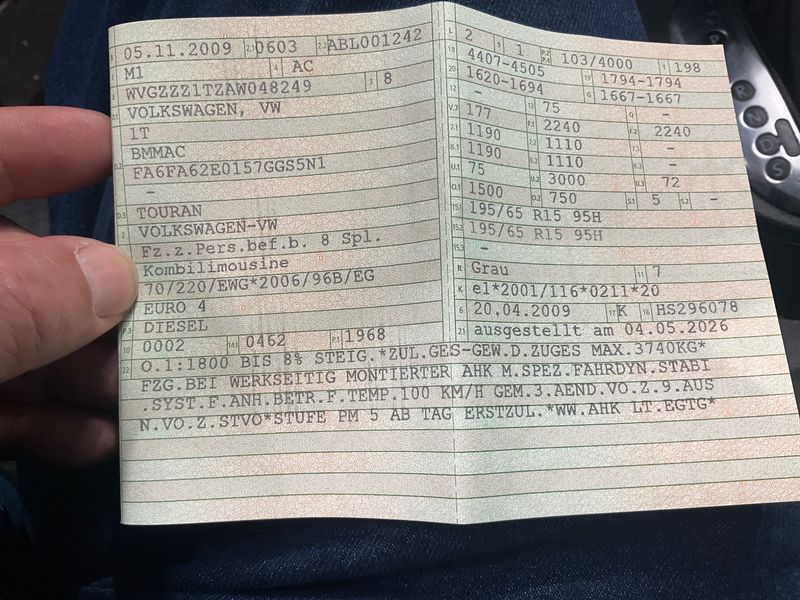 B 05.11.2009 2.1 0603 2.2 ABL001242
J M1 4 AC
E WVGZZZ1TZAW048249 3 8
D.1 VOLKSWAGEN, VW
1T
D.2 BMMAC
FA6FA62E0157GGS5N1
–
D.3 TOURAN
2 VOLKSWAGEN-VW
5 Fz.z.Pers.bef.b. 8 Spl.
Kombilimousine
70/220/EWG*2006/96B/EG
EURO 4
P.3 DIESEL
10 0002 14.1 0462 P.1 1968
L 2 9 1 P.2 P.4 103/4000 T 198
18 4407-4505 19 1794-1794
20 1620-1694 G 1667-1667
12 – 13 75 Q –
V.7 177 F.1 2240 F.2 2240
7.1 1190 7.2 1110 7.3 –
8.1 1190 8.2 1110 8.3 –
U.1 75 U.2 3000 U.3 72
O.1 1500 O.2 750 S.1 5 S.2 –
15.1 195/65 R15 95H
15.2 195/65 R15 95H
15.3 –
R Grau 11 7
K e1*2001/116*0211*20
6 20.04.2009 17 K 16 HS296078
21 ausgestellt am 04.05.2026
22 O.1:1800 BIS 8% STEIG.*ZUL.GES-GEW.D.ZUGES MAX.3740KG*
FZG.BEI WERKSEITIG MONTIERTER AHK M.SPEZ.FAHRDYN.STABI
.SYST.F.ANH.BETR.F.TEMP.100 KM/H GEM.3.AEND.VO.Z.9.AUS
N.VO.Z.STVO*STUFE PM 5 AB TAG ERSTZUL.*WW.AHK LT.EGTG*
R
N
D
S